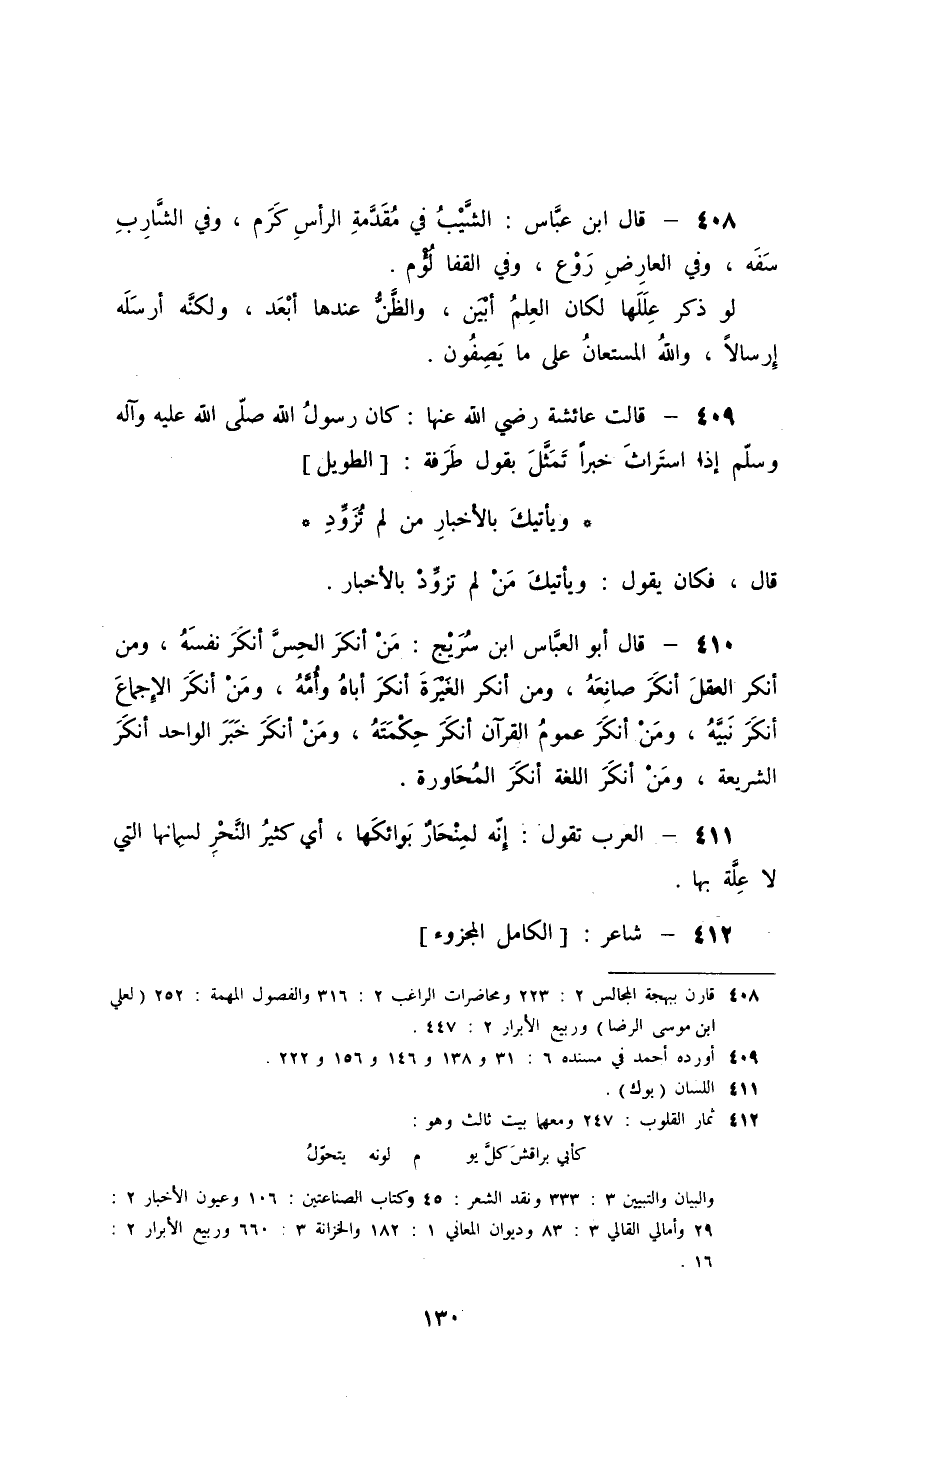 ٤٠٨ – قال ابن عبَّاس : الشَّيْبُ في مُقَدَّمةِ الرأسِ كَرَم ، وفي الشَّارِبِ
سَفَه ، وفي العارِضِ رَوْع ، وفي القفا لُؤْم .
لو ذكر عِلَلَها لكان العِلمُ أبْيَن ، والظَّنُّ عندها أبْعَد ، ولكنَّه أرسَلَه
إرسالاً ، واللهُ المستعانُ على ما يَصِفُون .
٤٠٩ – قالت عائشة رضي الله عنها : كان رسولُ الله صلّى الله عليه وآله
وسلّم إذا استَراثَ خبراً تَمَثَّلَ بقول طَرَفة : [ الطويل ]
* ويأتيكَ بالأخبارِ من لم تُزَوِّدِ *
قال ، فكان يقول : ويأتيكَ مَنْ لم تزوِّدْ بالأخبار .
٤١٠ – قال أبو العبَّاس ابن سُرَيْج : مَنْ أنكرَ الحِسَّ أنكَرَ نفسَهُ ، ومن
أنكر العقلَ أنكَرَ صانِعَهُ ، ومن أنكر الغَيْرَةَ أنكرَ أباهُ وأُمَّهُ ، ومَنْ أنكَرَ الإجماعَ
أنكَرَ نَبيَّهُ ، ومَنْ أنكَرَ عمومُ القرآن أنكَرَ حِكْمَتَهُ ، ومَنْ أنكَرَ خَبَرَ الواحد أنكَرَ
الشريعة ، ومَنْ أنكَرَ اللغة أنكَرَ المُحَاورة .
٤١١ – العرب تقول : إنّه لمِنْحَارٌ بَوائكَها ، أي كثيرُ النَّحْرِ لسِمانها التي
لا عِلَّة بها .
٤١٢ – شاعر : [ الكامل المجزوء ]
٤٠٨ قارن ببهجة المجالس ٢ : ٢٢٣ ومحاضرات الراغب ٢ : ٣١٦ والفصول المهمة : ٢٥٢ ( لعلي
ابن موسى الرضا ) وربيع الأبرار ٢ : ٤٤٧ .
٤٠٩ أورده أحمد في مسنده ٦ : ٣١ و ١٣٨ و ١٤٦ و ١٥٦ و ٢٢٢ .
٤١١ اللسان ( بوك ) .
٤١٢ ثمار القلوب : ٢٤٧ ومعها بيت ثالث وهو :
كأبي براقشَ كلَّ يو م لونه يتحوّلُ
والبيان والتبيين ٣ : ٣٣٣ ونقد الشعر : ٤٥ وكتاب الصناعتين : ١٠٦ وعيون الأخبار ٢ :
٢٩ وأمالي القالي ٣ : ٨٣ وديوان المعاني ١ : ١٨٢ والخزانة ٣ : ٦٦٠ وربيع الأبرار ٢ :
١٦ .
١٣٠